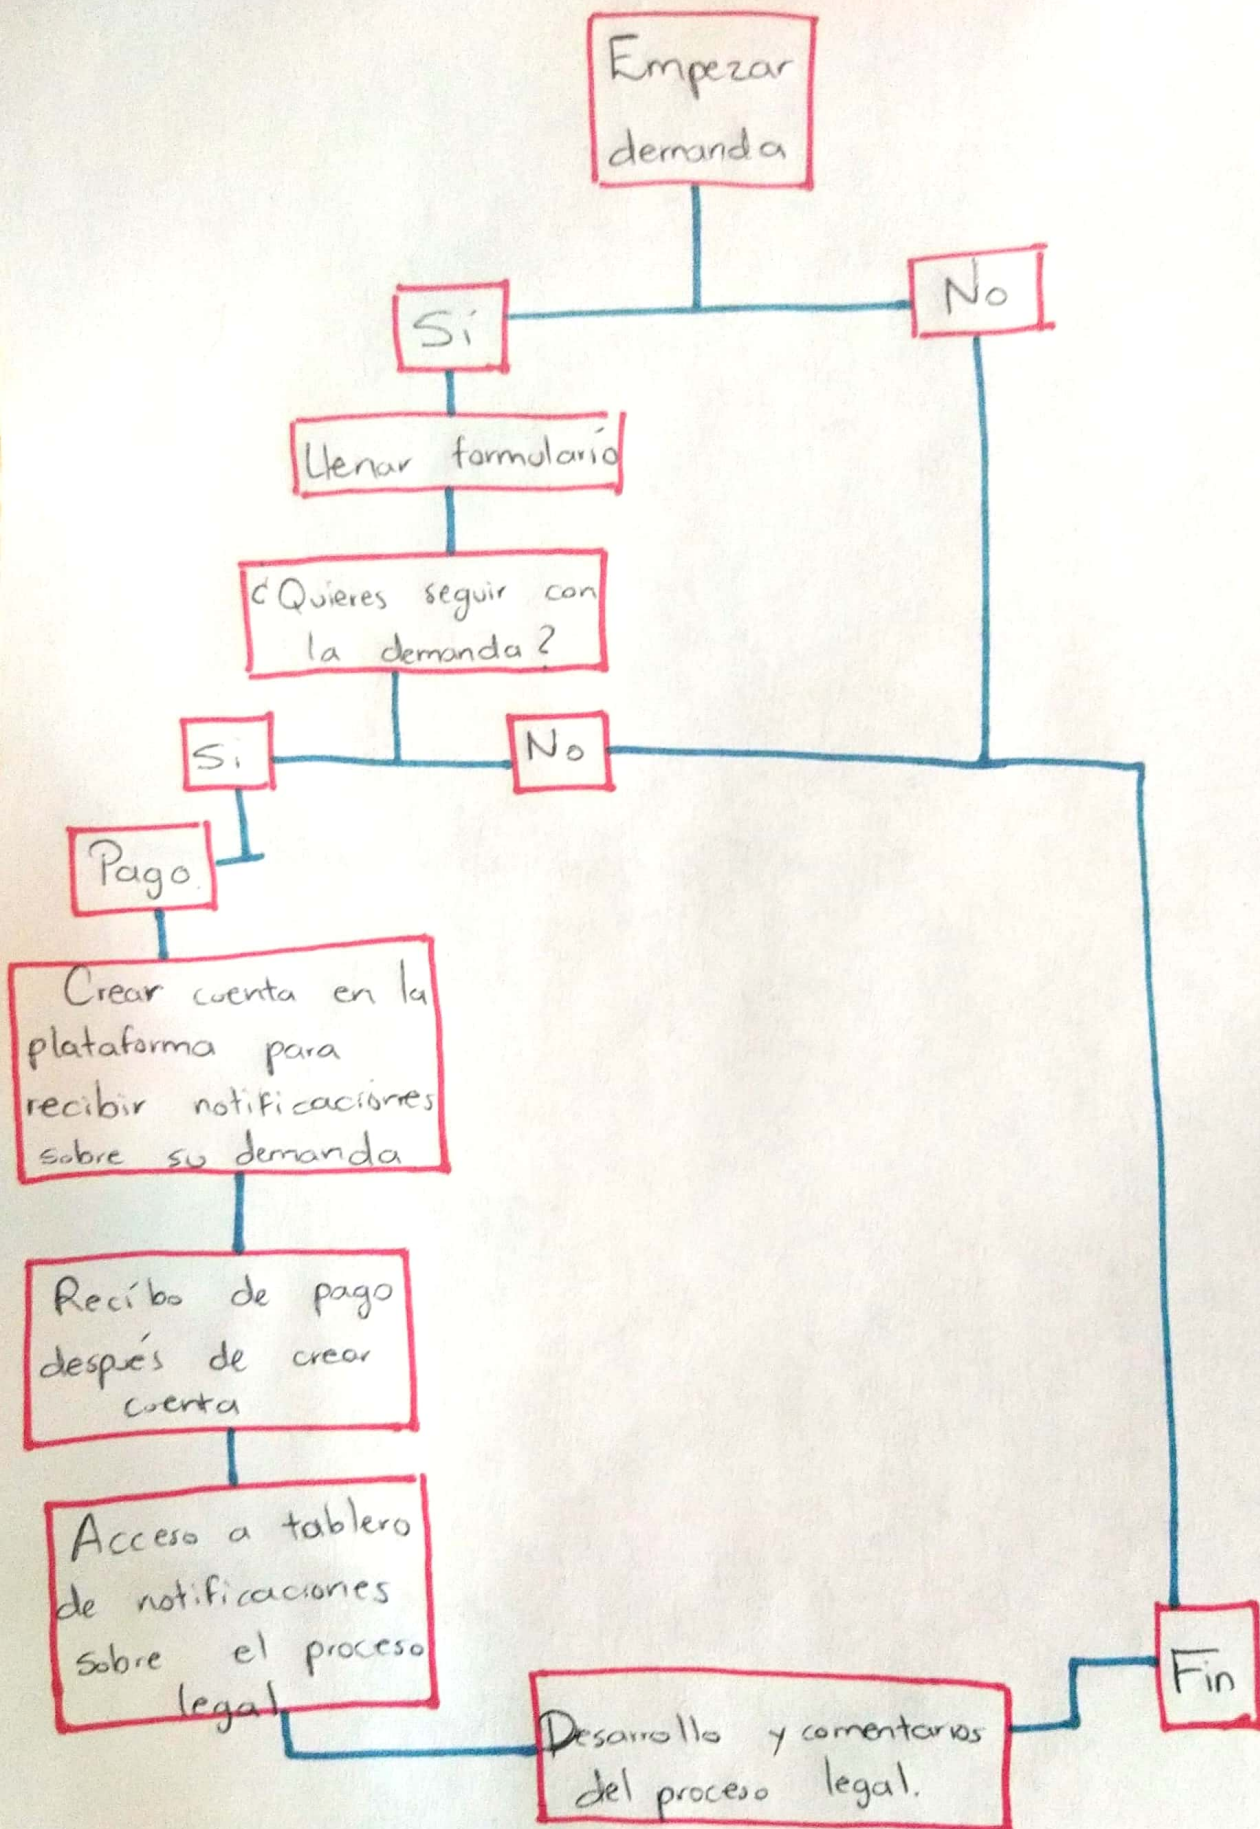 Empezar
demanda
Sí
No
Llenar formulario
¿Quieres seguir con
la demanda?
Si
No
Pago.
Crear cuenta en la
plataforma para
recibir notificaciones
sobre su demanda
Recibo de pago
después de crear
cuenta
Acceso a tablero
de notificaciones
sobre el proceso
legal
Desarrollo y comentarios
del proceso legal.
Fin